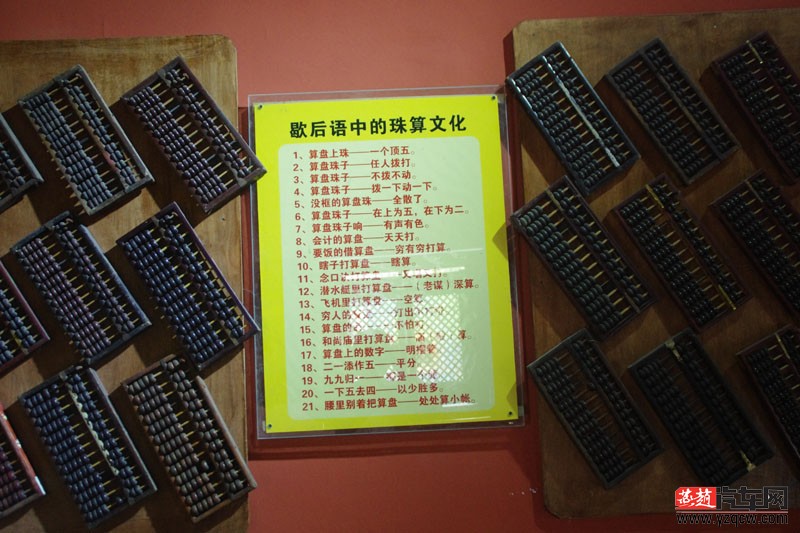 歇后语中的珠算文化
1、算盘上珠——一个顶五。
2、算盘珠子——任人拨打。
3、算盘珠子——不拨不动。
4、算盘珠子——拨一下动一下。
5、没框的算盘珠——全散了。
6、算盘珠子——在上为五，在下为二。
7、算盘珠子响——有声有色。
8、会计的算盘——天天打。
9、要饭的借算盘——穷有穷打算。
10、瞎子打算盘——瞎算。
11、念口诀打算盘——
12、潜水艇里打算盘——（老谋）深算。
13、飞机里打算盘——空
14、穷人的 打出
15、算盘的 不怕
16、和尚庙里打算盘
17、算盘上的数字——明摆着
18、二一添作五——平分。
19、九九归一 是一个
20、一下五去四——以少胜多。
21、腰里别着把算盘——处处算小帐。
燕赵汽车网
www.yzqcw.com